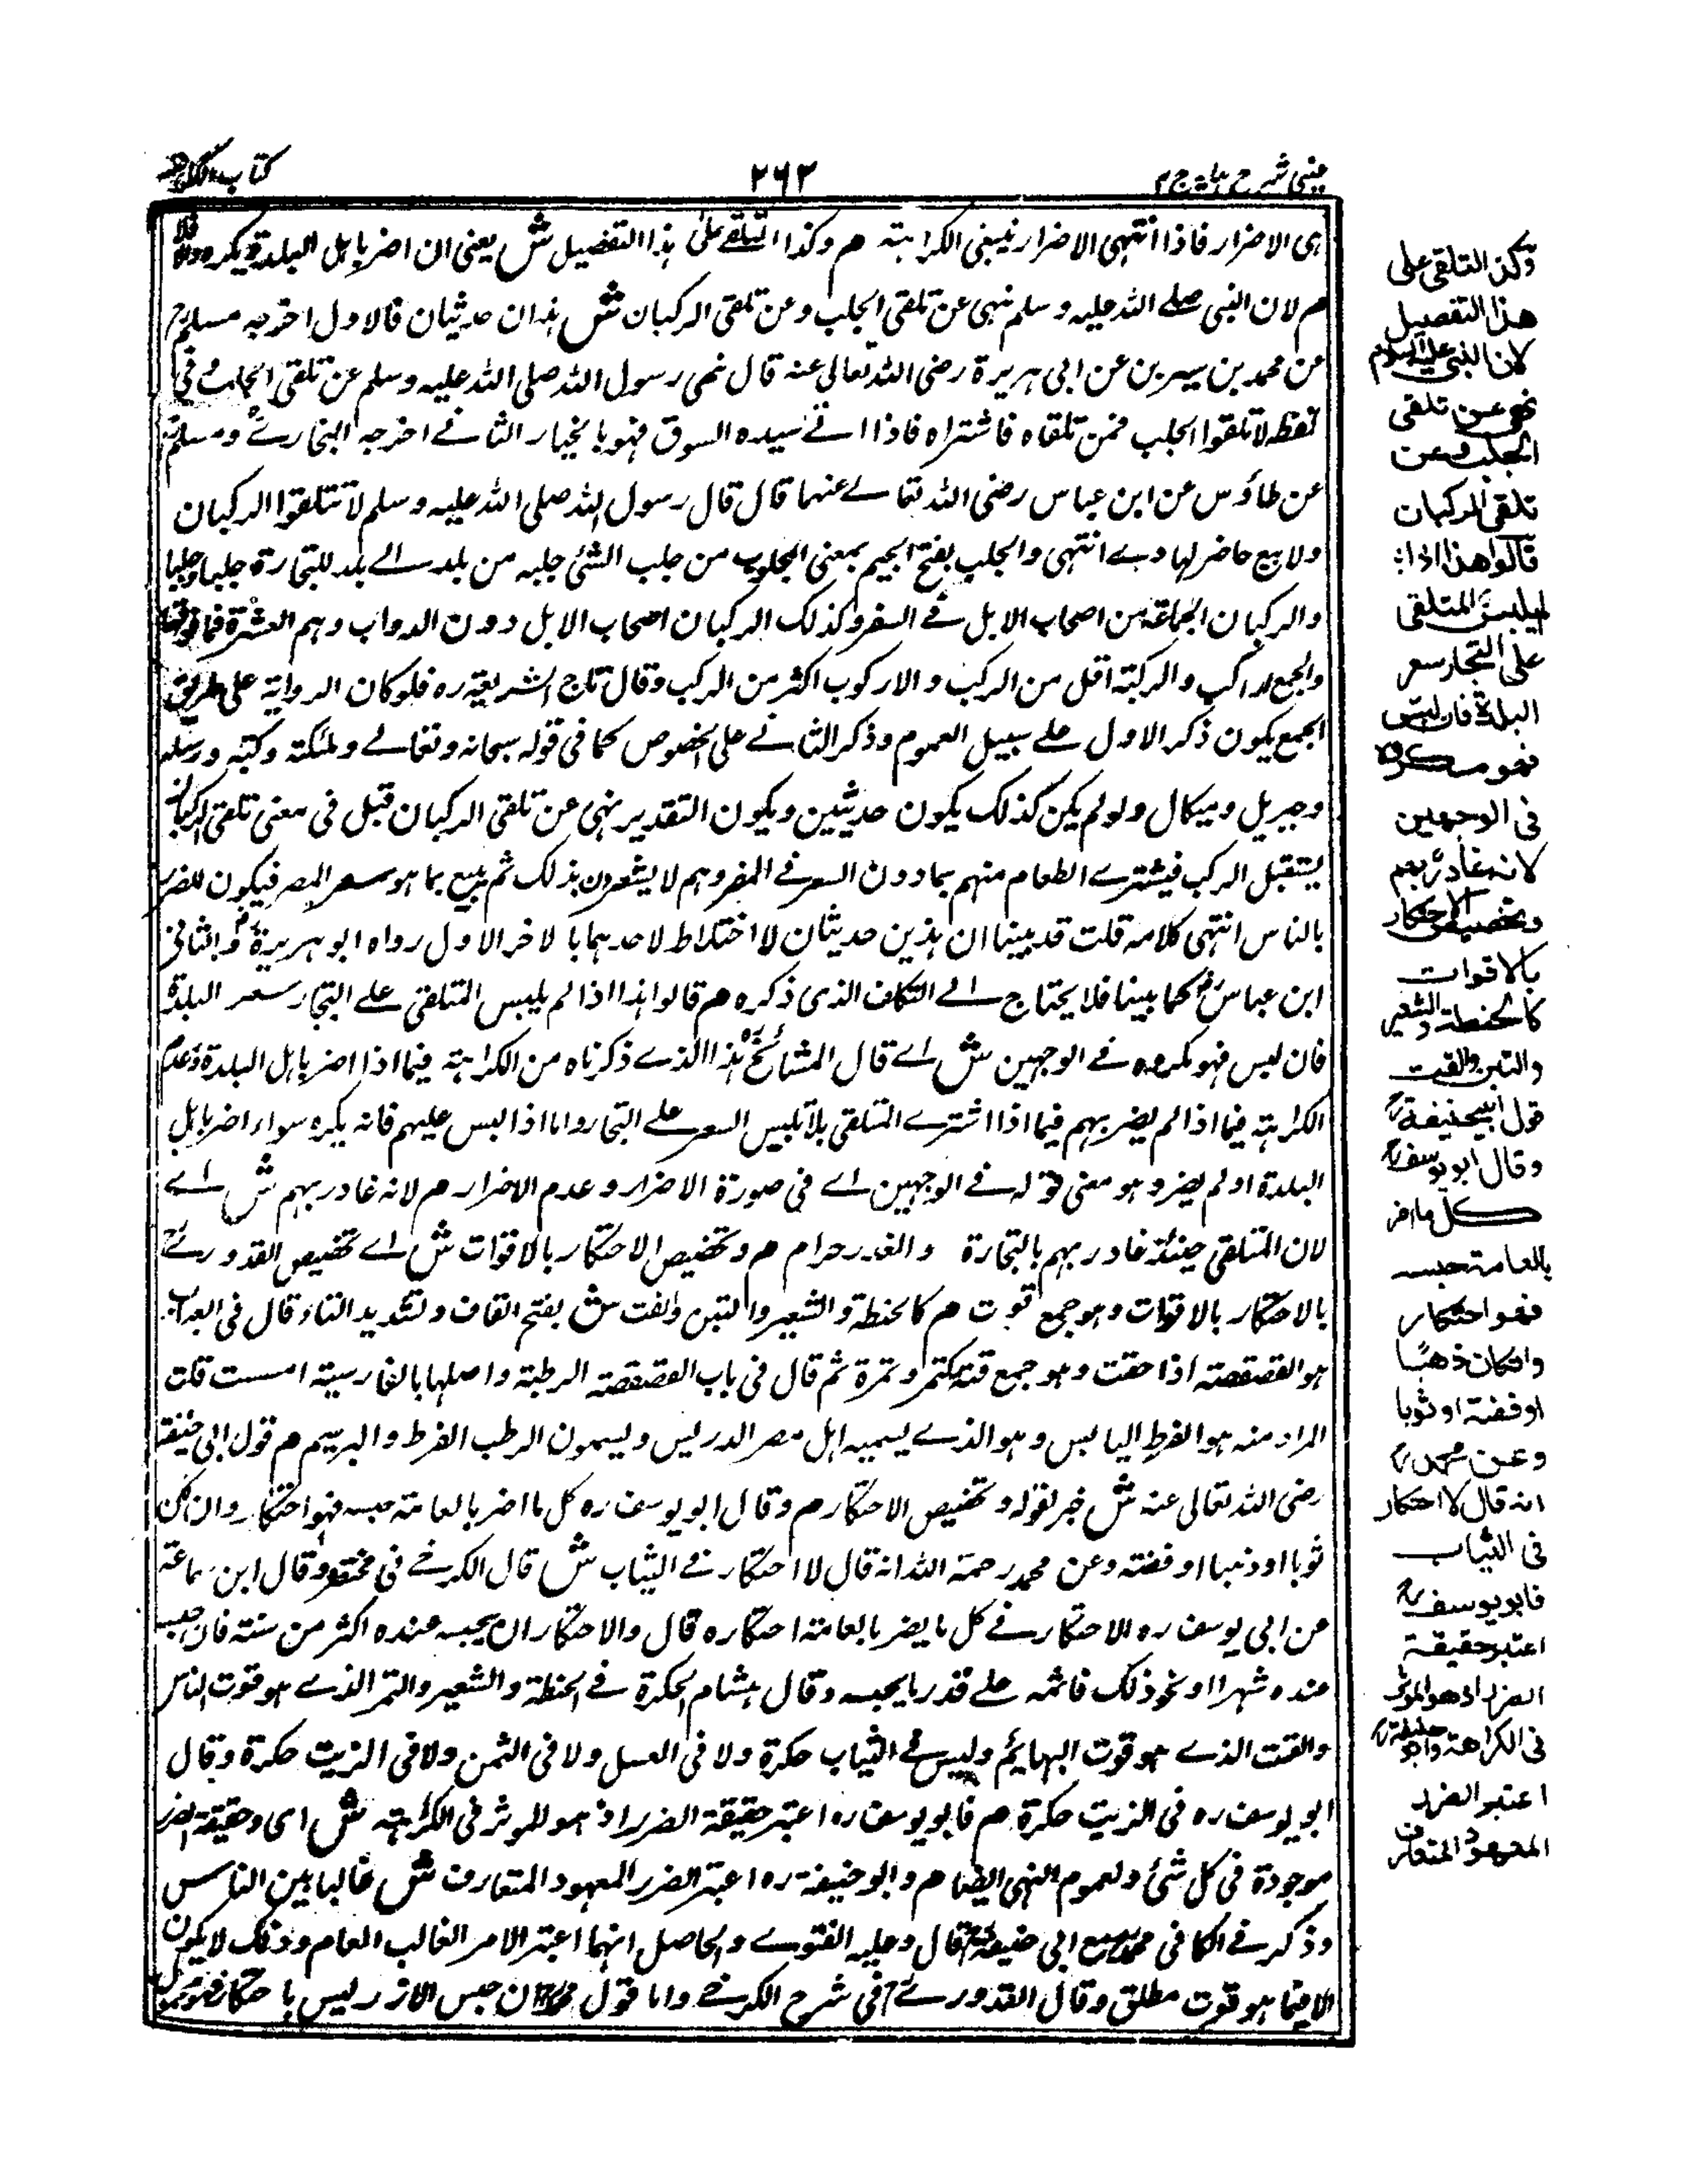 عینی شرح ہدایہ ج ۴
۲۶۲
کتاب الکراھیۃ
ہی الاضرار فاذا انتہی الاضرار ینبغی الکراہتہ م وکذا التلقے علی ہذا التفصیل ش یعنی ان اضر باہل البلدۃ یکرہ والا فلا
م لان النبی صلے اللہ علیہ وسلم نہی عن تلقی الجلب وعن تلقی الرکبان ش ہذان حدیثان فالاول اخرجہ مسلم
عن محمد بن سیرین عن ابی ہریرۃ رضی اللہ تعالی عنہ قال نہی رسول اللہ صلی اللہ علیہ وسلم عن تلقی الجلب وفی
لفظہ لا تلقوا الجلب فمن تلقاہ فاشتراہ فاذا اتے سیدہ السوق فہو بالخیار الثانے اخرجہ البخارے ومسلم
عن طاؤس عن ابن عباس رضی اللہ تعالے عنہما قال قال رسول اللہ صلی اللہ علیہ وسلم لا تتلقوا الرکبان
ولا بیع حاضر لبادے انتہی والجلب بفتح الجیم بمعنی المجلوب من جلب الشئ جلبہ من بلد الے بلد للتجارۃ جلبا وجلبا
والرکبان الجماعۃ من اصحاب الابل فے السفر وکذلک الرکبان اصحاب الابل دون الدواب وہم العشرۃ فما فوقہا
والجمع اراکب والرکبۃ اقل من الرکب والارکوب اکثر من الرکب وقال تاج الشریعۃ رہ فلو کان الروایۃ علی طریق
الجمع یکون ذکر الاول علے سبیل العموم وذکر الثانے علی الخصوص کما فی قولہ سبحانہ وتعالے وملئکتہ وکتبہ ورسلہ
وجبریل ومیکال ولو لم یکن کذلک یکون حدیثین ویکون التقدیر نہی عن تلقی الرکبان قبل فی معنی تلقی الرکبان
یستقبل الرکب فیشترے الطعام منہم بما دون السعر فے المصر وہم لا یشعرون بذلک ثم یبیع بما ہو سعر المصر فیکون للضرر
بالناس انتہی کلامہ قلت قد بینا ان ہذین حدیثان لا اختلاط لاحدہما بالاخر الاول رواہ ابو ہریرۃ والثانی
ابن عباس کما بینا فلا یحتاج الے التکلف الذی ذکرہ م قالوا ہذا اذا لم یلبس المتلقی علے التجار سعر البلدۃ
فان لبس فہو مکروہ فے الوجہین ش اے قال المشائخ ہذا الذے ذکرناہ من الکراہتہ فیما اذا اضر باہل البلدۃ وعدم
الکراہتہ فیما اذا لم یضر بہم فیما اذا اشترے المتلقی بلا تلبیس السعر علے التجار واما اذا لبس علیہم فانہ یکرہ سواء اضر باہل
البلدۃ او لم یضر وہو معنی قولہ فے الوجہین اے فی صورۃ الاضرار وعدم الاضرار م لانہ غادر بہم ش اے
لان المتلقی حینئذ غادر بہم بالتجارۃ والغدر حرام م وتخصیص الاحتکار بالاقوات ش اے تخصیص القدورے
بالاحتکار بالاقوات وہو جمع قوت م کالحنطۃ والشعیر والتبن والقت ش بفتح القاف وتشدید التاء قال فی العباب
ہو الفصفصتہ اذا جفت وہو جمع قتۃ کتمر وتمرۃ ثم قال فی باب الفصفصتہ الرطبتہ واصلہا بالفارسیتہ امست قلت
المراد منہ ہو القرط الیابس وہو الذے یسمیہ اہل مصر الدریس ویسمون الرطب القرط والبرسیم م قول ابی حنیفۃ
رضی اللہ تعالی عنہ ش خبر لقولہ وتخصیص الاحتکار م وقال ابو یوسف رہ کل ما اضر بالعامتہ حبسہ فہو احتکار وان کان
ثوبا او ذہبا او فضتہ وعن محمد رحمۃ اللہ انہ قال لا احتکار فے الثیاب ش قال الکرخے فی مختصرہ وقال ابن سماعتہ
عن ابی یوسف رہ الاحتکار فے کل ما یضر بالعامتہ احتکارہ قال والاحتکار ان یحبسہ عندہ اکثر من سنتہ فان حبسہ
عندہ شہرا او نحو ذلک فاثمہ علے قدر ما یحبسہ وقال ہشام الحکرۃ فے الحنطۃ والشعیر والتمر الذے ہو قوت الناس
والقت الذے ہو قوت البہائم ولیس فے الثیاب حکرۃ ولا فی العسل ولا فی السمن ولا فی الزیت حکرۃ وقال
ابو یوسف رہ فی الزیت حکرۃ م فابو یوسف رہ اعتبر حقیقۃ الضرر اذ ہو الموثر فی الکراہتہ ش ای وحقیقۃ الضرر
موجودۃ فی کل شئ ولعموم النہی ایضا م وابو حنیفۃ رہ اعتبر الضرر المعہود المتعارف ش غالبا بین الناس
وذکر فے الکافی محمد مع ابی حنیفۃ قال وعلیہ الفتوے والحاصل انہما اعتبرا الامر الغالب العام وذلک لا یکون
الا فیما ہو قوت مطلق وقال القدورے فی شرح الکرخے واما قول محمد ان حبس الارز لیس باحتکار فہو محمول
وکذا التلقی علی
ھذا التفصیل
لان النبی علیہ السلام
نھی عن تلقی
الجلب وعن
تلقی الرکبان
قالوا ھذا اذا
لم یلبس المتلقی
علی التجار سعر
البلدۃ فان لبس
فھو مکروہ
فی الوجھین
لانہ غادر بھم
وتخصیص الاحتکار
بالاقوات
کالحنطۃ والشعیر
والتبن والقت
قول ابیحنیفۃ رح
وقال ابو یوسف رح
کل ما اضر
بالعامۃ حبسہ
فھو احتکار
وانکان ذھبًا
او فضۃ او ثوبا
وعن محمد رح
انہ قال لا احتکار
فی الثیاب
فابو یوسف رح
اعتبر حقیقۃ
الضرر اذ ھو الموثر
فی الکراھۃ وابو حنیفۃ رح
اعتبر الضرر
المعھود المتعارف